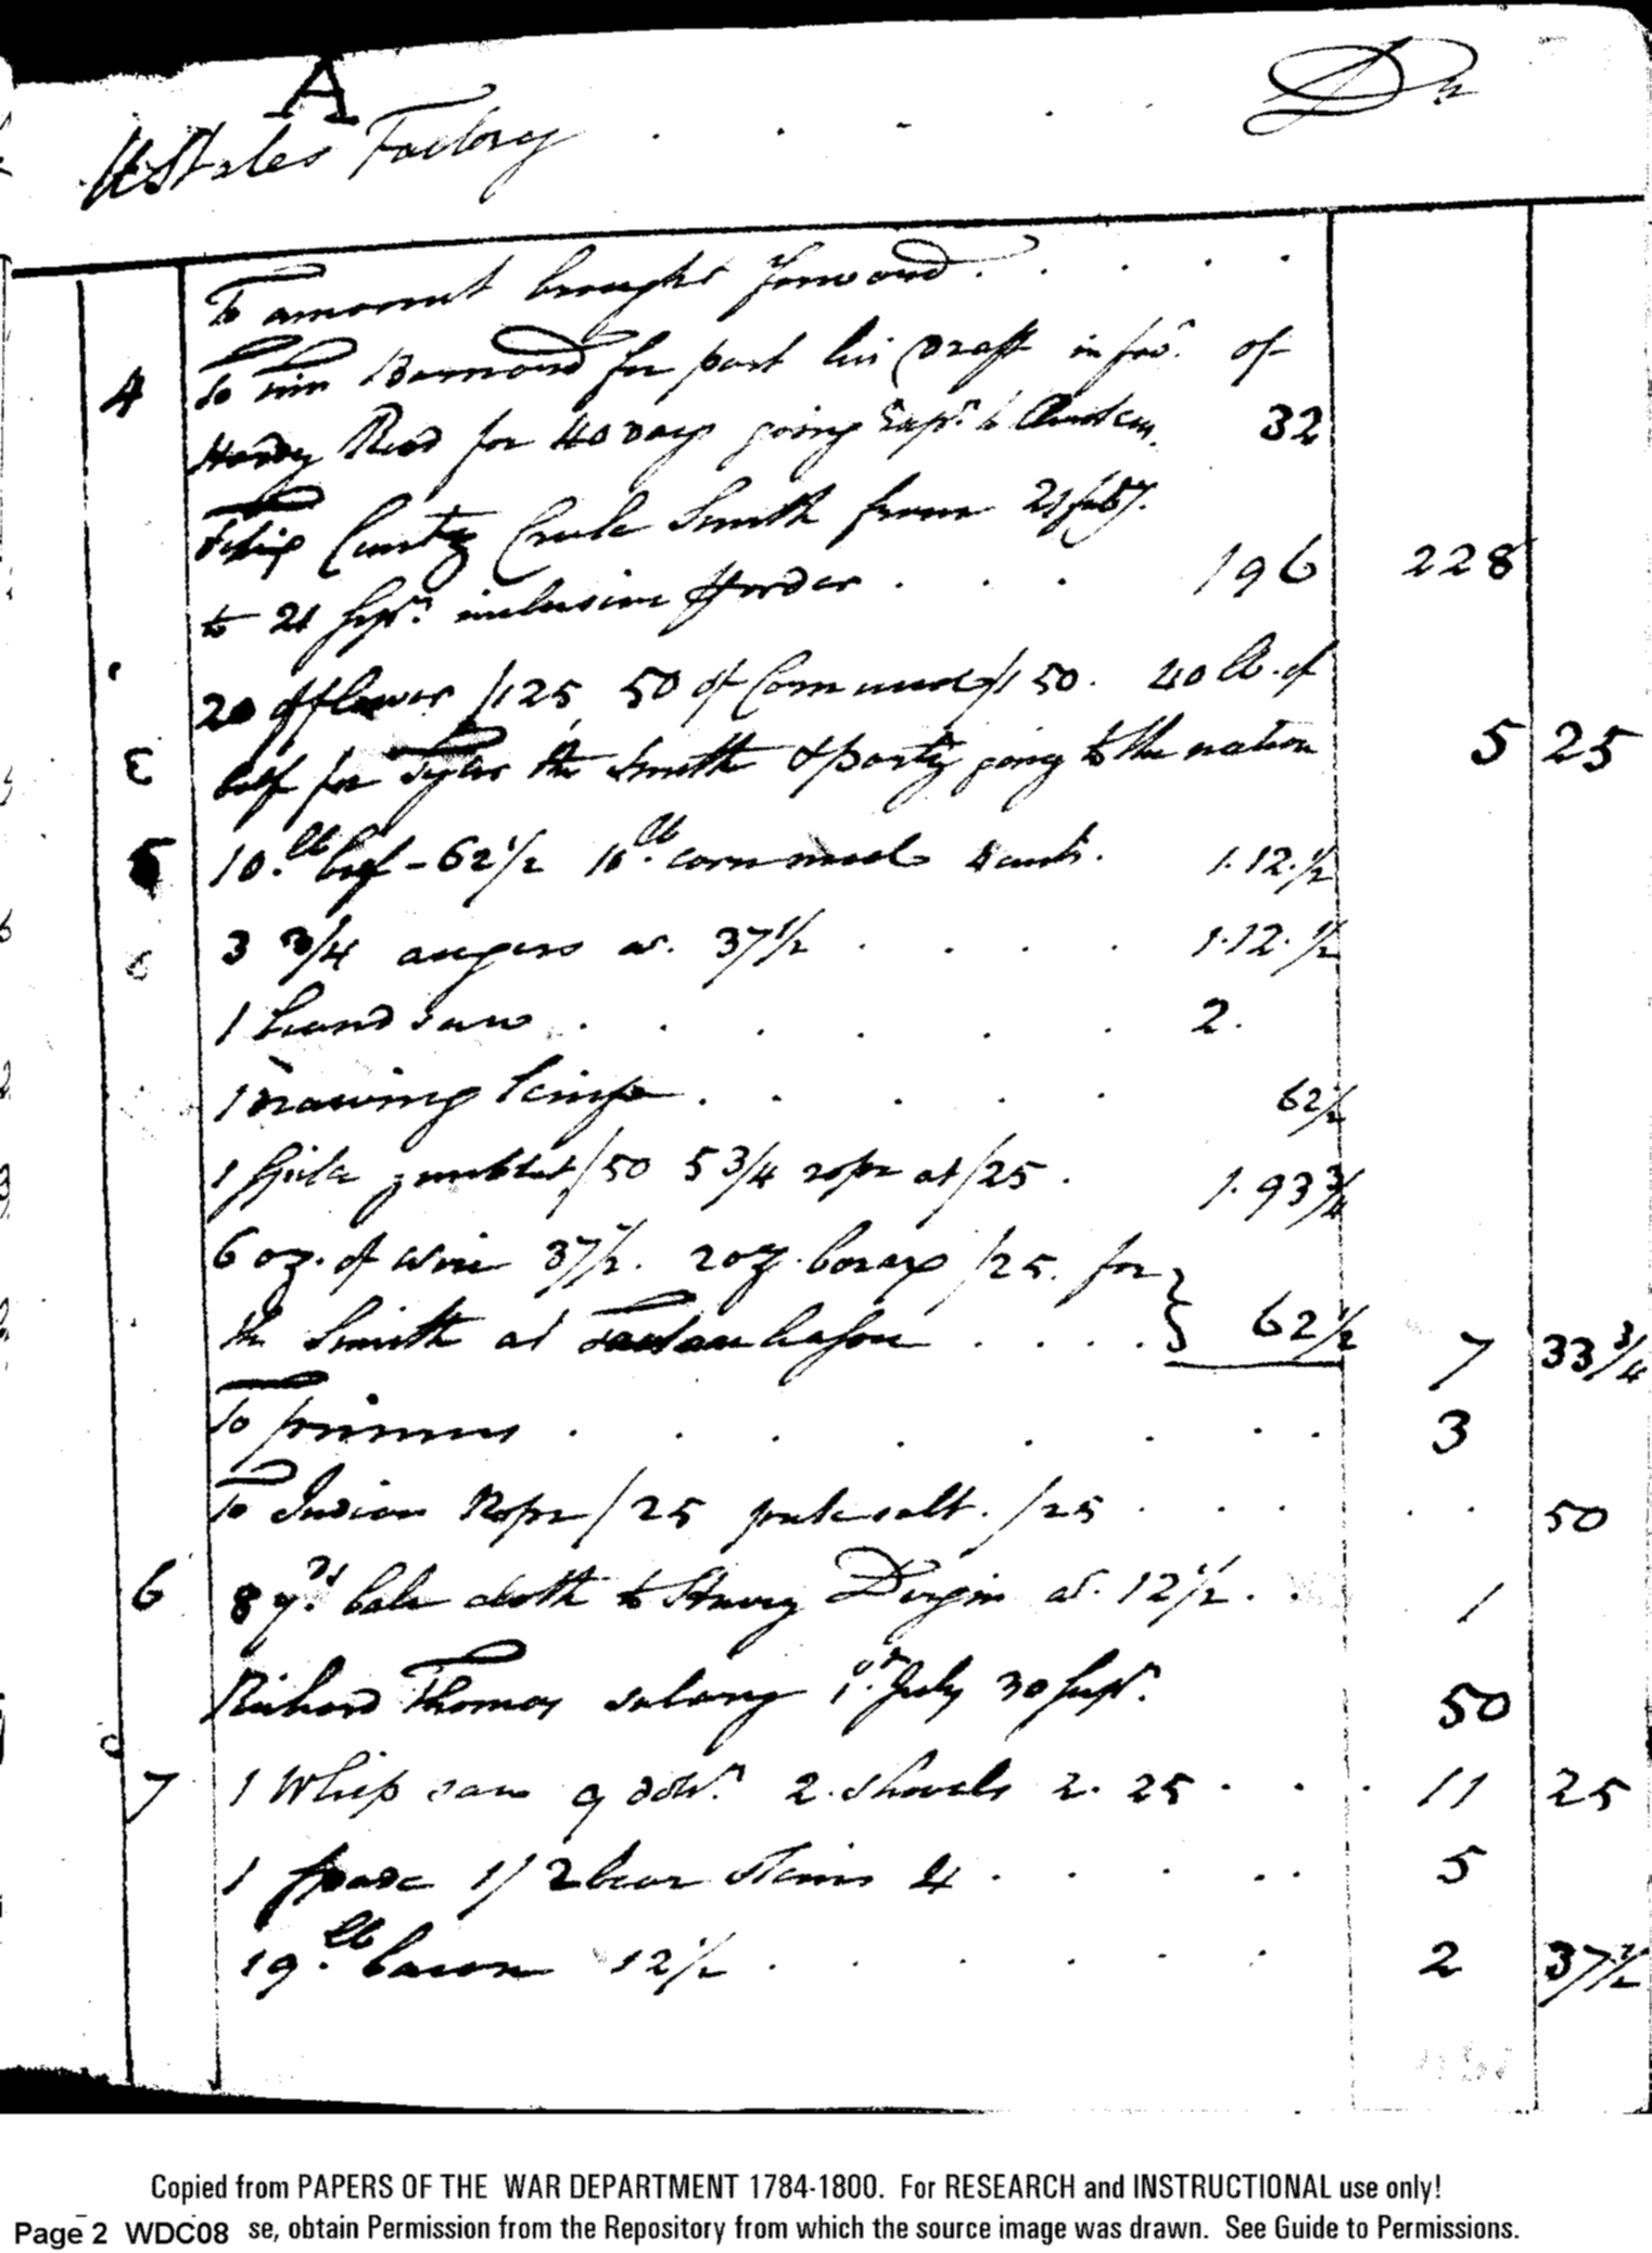 A
UStates Factory . . . . . Dr
To amount brought forward . . . . .
4 To Tim Barnard for part his Draft in favr. of
Hardy Read for 40 Days going Exps. to 32
Creek Smith from 21 feby.
to 21 Sepr. inclusive order . . . 196 228
20 of flower /125 50 of Corn meal /150. 40 lb. of
beef for Tyler the Smith & party going to the nation 5 25
5 10.lb beef - 62 1/2 10lb. corn meal 1.12.1/2
6 3 3/4 augers at. 37 1/2 . . . . 1.12.1/2
1 hand saw . . . . . . 2.
1 Drawing knife . . . . . 62 1/2
1 Spike gimblet /50 5 3/4 rope at /25 . 1.93 3/4
6 oz. of wire 37 1/2. 2 oz. borax /25. for }
the Smith at . . . . } 62 1/2 7 33 3/4
To . . . . . . . . 3
To Indian Rope /25 salt. /25 . . . . . 50
6 8 yds. bale cloth to Durgin at. 12 1/2 . . 1
Richard Thomas salary 1st. July 30 Sepr. 50
7 1 Whip saw 9 dolrs. 2. shovels 2. 25 . . . 11 25
1 spade 1/ 2 bear skins 4 . . . . . 5
19.lb bacon 12 1/2 . . . . . . 2 37 1/2
Copied from PAPERS OF THE WAR DEPARTMENT 1784-1800. For RESEARCH and INSTRUCTIONAL use only!
Page 2 WDC08 se, obtain Permission from the Repository from which the source image was drawn. See Guide to Permissions.